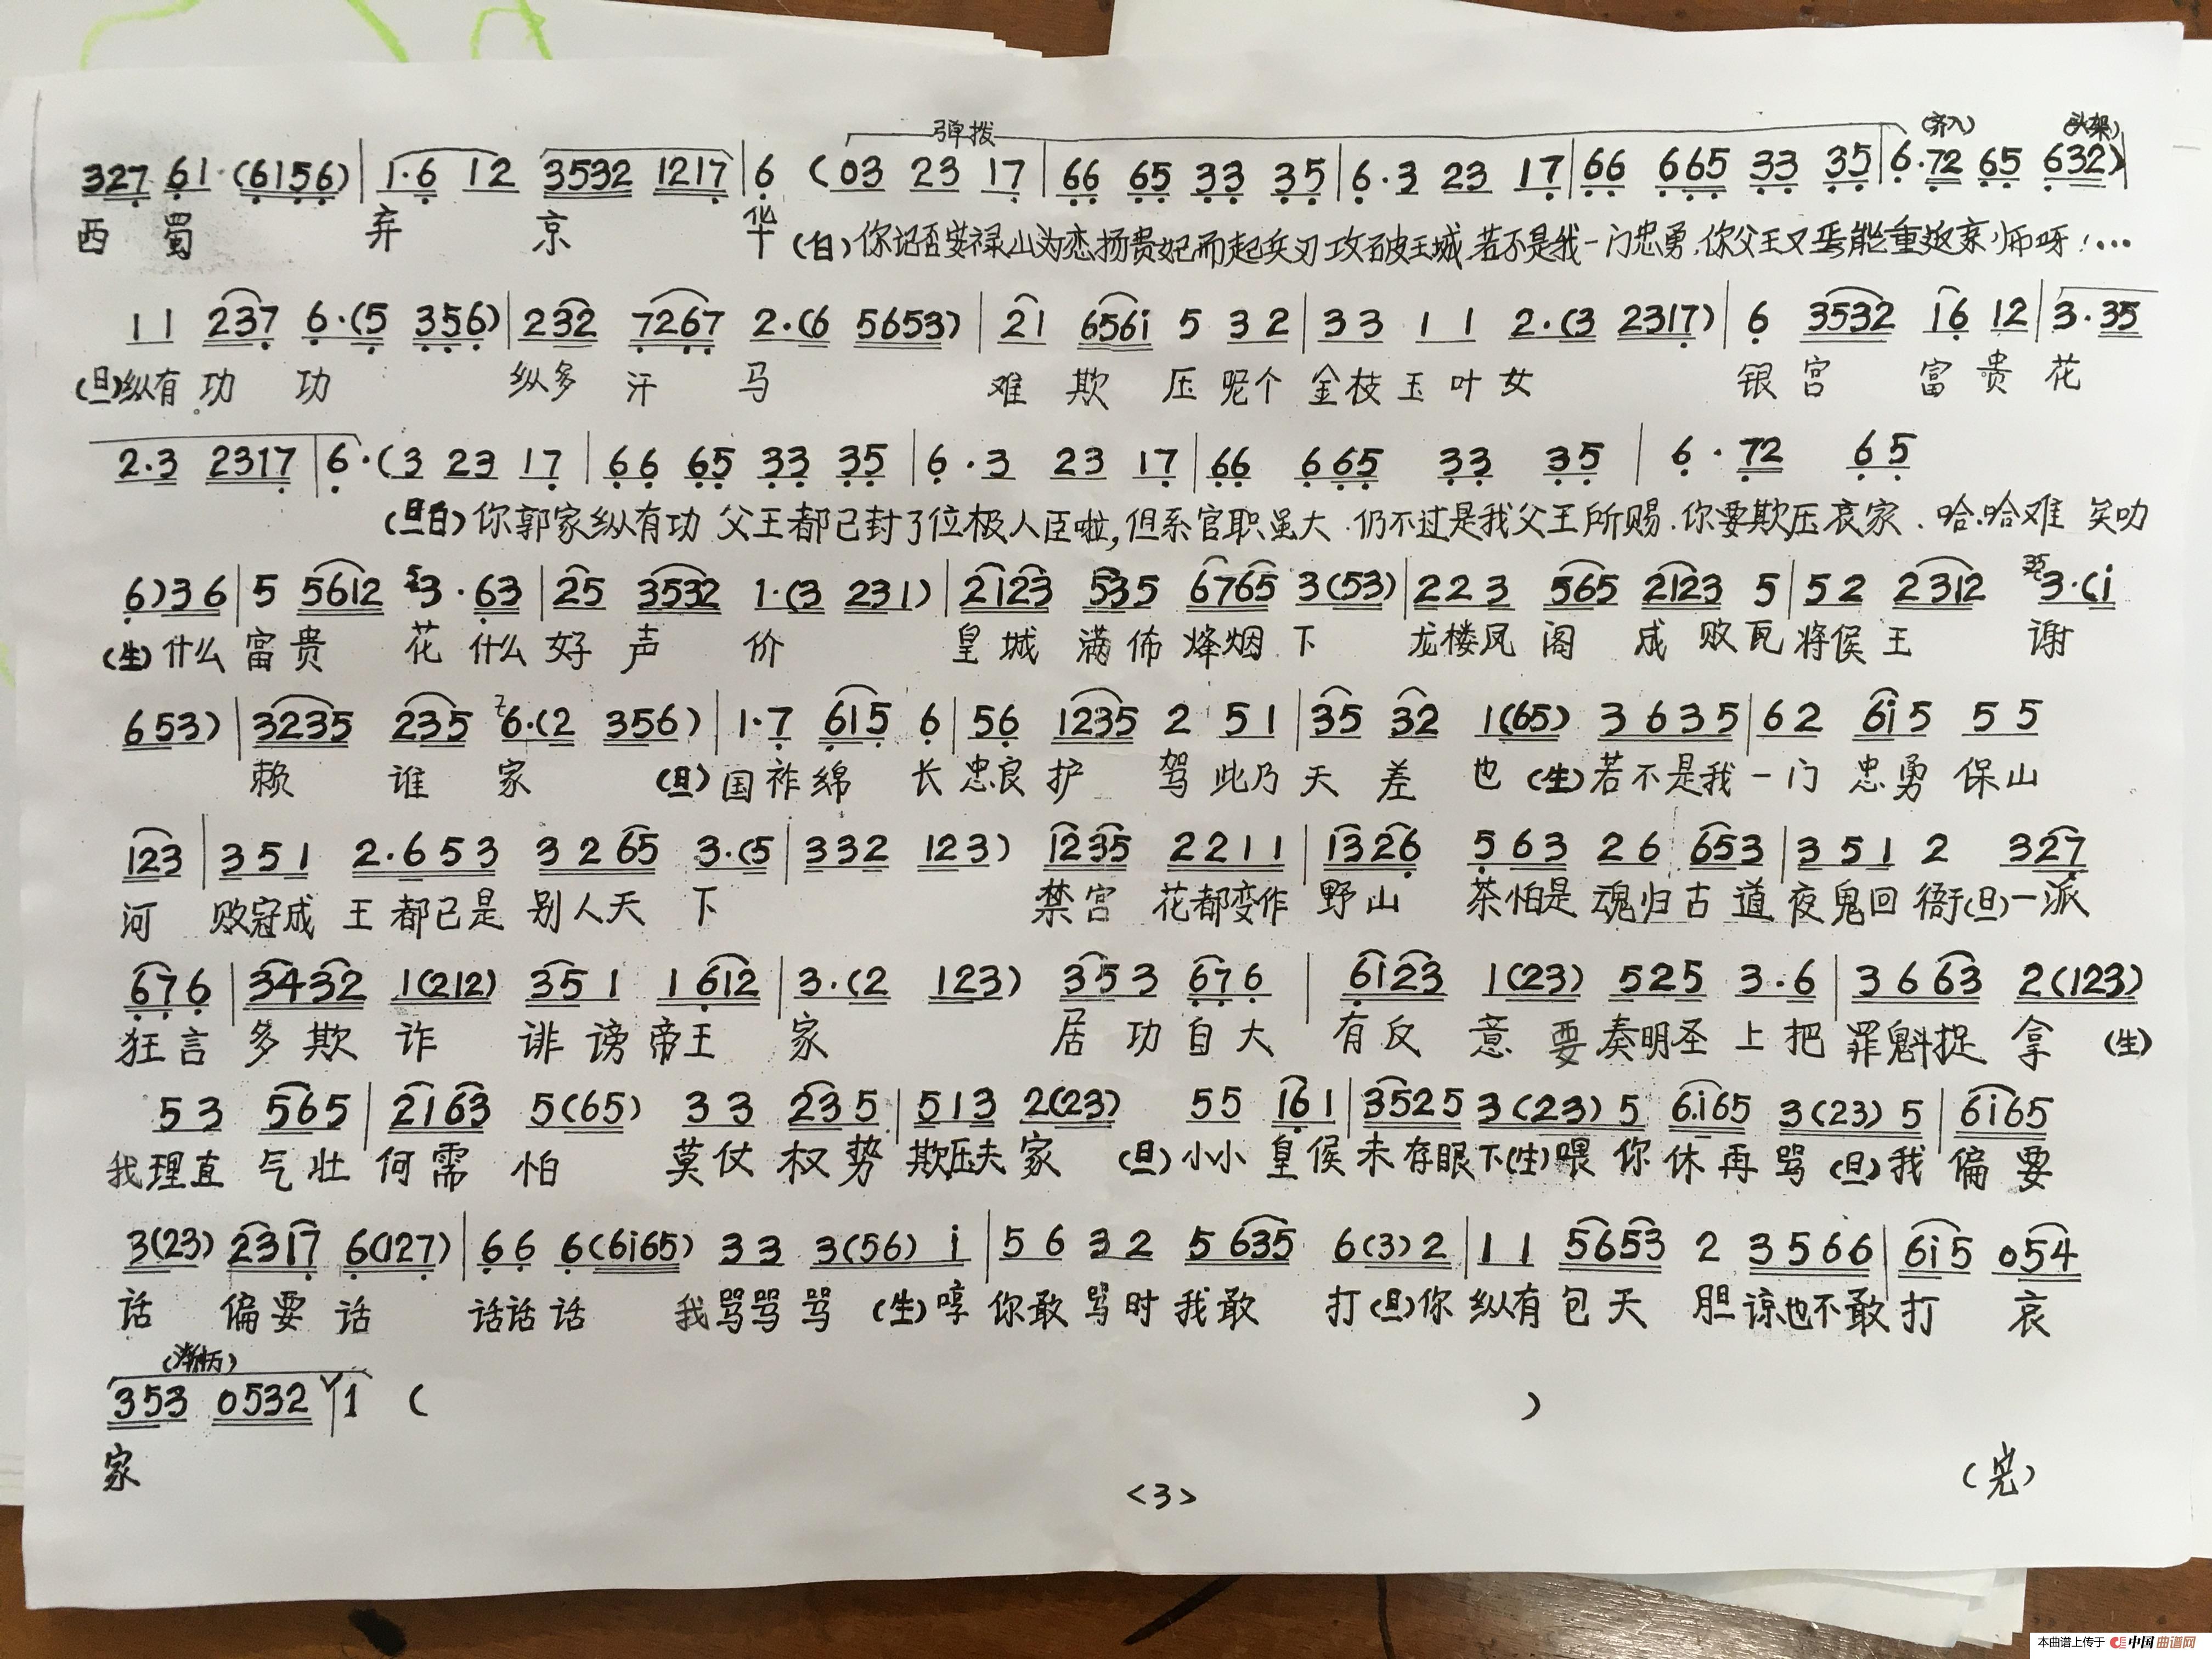 弹拨 (齐入) (头架)
327 61·(6156) | 1·6 12 3532 1217 | 6 (03 23 17 | 66 65 33 35 | 6·3 23 17 | 66 665 33 35 | 6·72 65 632)
西 蜀 弃 京 华 (白)你记否安禄山为恋扬贵妃而起兵刃攻破王城,若不是我一门忠勇,你父王又焉能重返京师呀!…
11 237 6·(5 356) | 232 7267 2·(6 5653) | 21 656i 5 32 | 33 11 2·(3 2317) | 6 3532 16 12 | 3·35
(旦)纵有 功 功 纵多 汗 马 难 欺 压 呢个 金枝玉叶女 银 宫 富 贵 花
2·3 2317 | 6·(3 23 17 | 66 65 33 35 | 6·3 23 17 | 66 665 33 35 | 6·72 65
(旦白)你郭家纵有功 父王都已封了位极人臣啦,但系官职虽大.仍不过是我父王所赐.你要欺压哀家.哈.哈难 矣叻
6)36 | 5 5612 3·63 | 25 3532 1·(3 231) | 2123 535 6765 3(53) | 223 565 2123 5 | 52 2312 35 3·(i
(生)什么 富贵 花 什么 好 声 价 皇 城 满 佈 烽烟 下 龙楼凤 阁 成 败瓦 将侯 王 谢
653) | 3235 235 7 6·(2 356) | 1·7 615 6 | 56 1235 2 51 | 35 32 1(65) 3635 | 62 6i5 55
赖 谁 家 (旦)国 祚 绵 长 忠良 护 驾 此乃 天 差 也 (生)若不是我 一门 忠勇 保山
123 | 351 2·653 3265 3·(5 | 332 123) 1235 2211 | 1326 563 26 653 | 351 2 327
河 败寇成 王 都已是 别人天 下 禁宫 花都变作 野山 茶怕是 魂归古 道 夜鬼回 衙(旦)一派
676 | 3432 1(212) 351 1612 | 3·(2 123) 353 676 | 6123 1(23) 525 3·6 | 3663 2(123)
狂言 多欺 诈 诽谤帝王 家 居 功自大 有反 意 要奏明圣上把罪魁捉 拿 (生)
53 565 | 2163 5(65) 33 235 | 513 2(23) 55 161 | 3525 3(23)5 6.i65 3(23)5 | 6i65
我理直 气壮 何需 怕 莫仗 权势 欺压夫 家 (旦)小小 皇侯 未存眼下(生)喂 你休再骂 (旦)我 偏要
3(23) 2317 6(127) | 66 6(6i65) 33 3(56) i | 56 32 5635 6(3)2 | 11 5653 2 3566 | 6i5 054
话 偏要 话 话话话 我骂骂 骂 (生)哼 你敢 骂时我敢 打(旦)你 纵有 包天 胆 谅也不敢打 哀
353 0532 | 1 ( )
家
(完)
<3>
本曲谱上传于 中国曲谱网